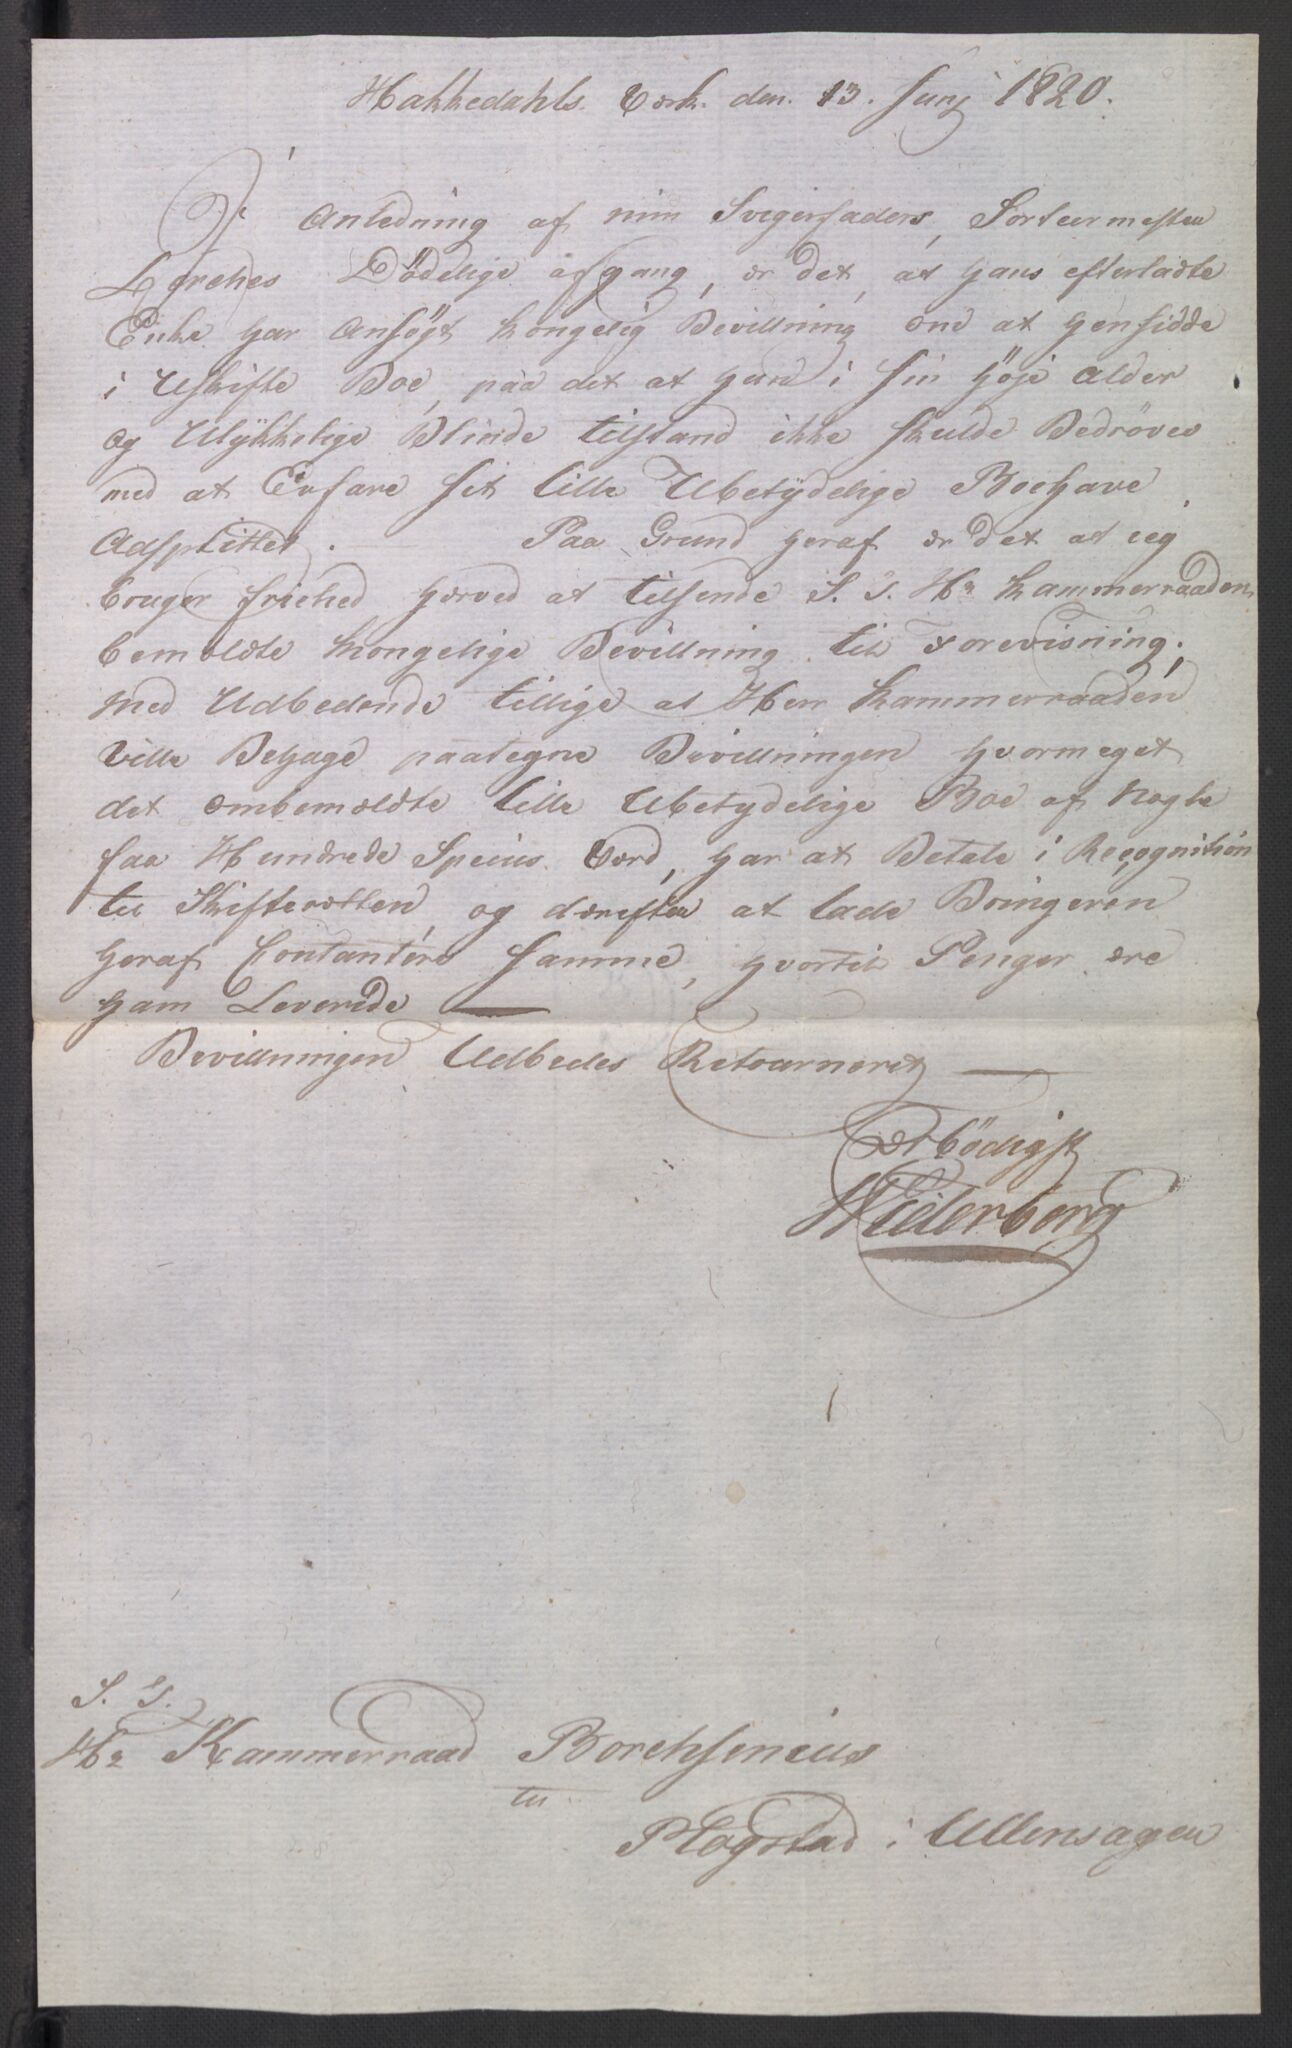 Hakkedahls Værk den 13. Junj 1820.
I Anledning af min Svigerfaders, Sorteermester
Lerches Dödelige afgang, er det, at hans efterladte
Enke har Ansögt kongelig Bevillning om at hensidde
i Uskifte Boe, paa det at hun i sin höje Alder
og Ulÿkkelige Blinde tilstand ikke skulde Bedröves
med at Erfare sit lille Ubetÿdelige Boehave
Adsplittet. Paa Grund heraf er det at ieg
bruger friehed herved at tilsende S. T. Hr Kammerraaden
bemeldte kongelige Bevillning til Forevisning;
Med Udbedende tillige at Herr Kammerraaden
Ville Behage paategne Bevillningen hvormeget
det ombemeldte lille Ubetydelige Boe af Nogle
faa Hundrede Specius Værd, har at Betale i Recognition
til Skifteretten, og derefter at lade Bringeren
heraf Contantere samme, hvortil Penger ere
ham Leverede —
Bevillningen Udbedes Retourneret —
Ærbödigst
S. T.
Hr Kammerraad Borchsenius
til
Rogstad i Ullensager